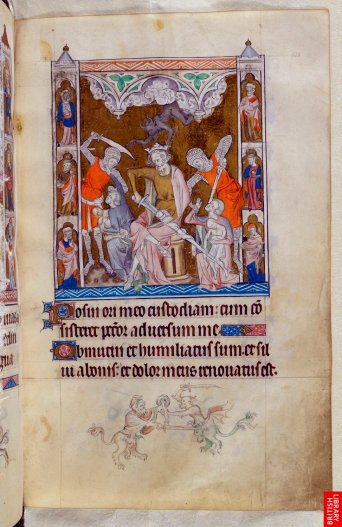 Posui ori meo custodiam: cum cō
sisteret pctōr aduersum me.
Obmutui et humiliatus sum. et sil
ui a bonis: et dolor meus renouatus est.
BRITISH
LIBRARY